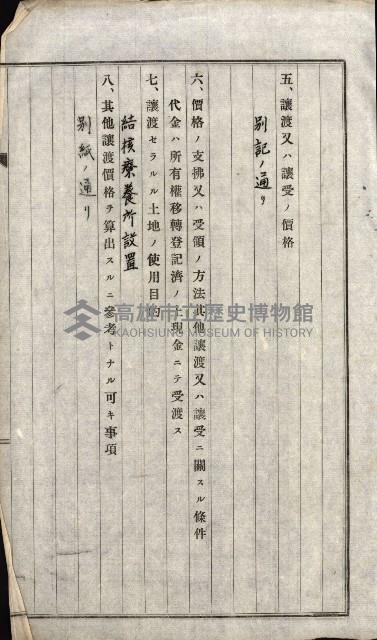 五、讓渡又ハ讓受ノ價格
別記ノ通リ
六、價格ノ支拂又ハ受領ノ方法其他讓渡又ハ讓受ニ關スル條件
代金ハ所有權移轉登記濟ノ上現金ニテ受渡ス
七、讓渡セラルル土地ノ使用目的
結核療養所設置
八、其他讓渡價格ヲ算出スルニ參考トナル可キ事項
別紙ノ通リ
高雄市立歷史博物館
KAOHSIUNG MUSEUM OF HISTORY